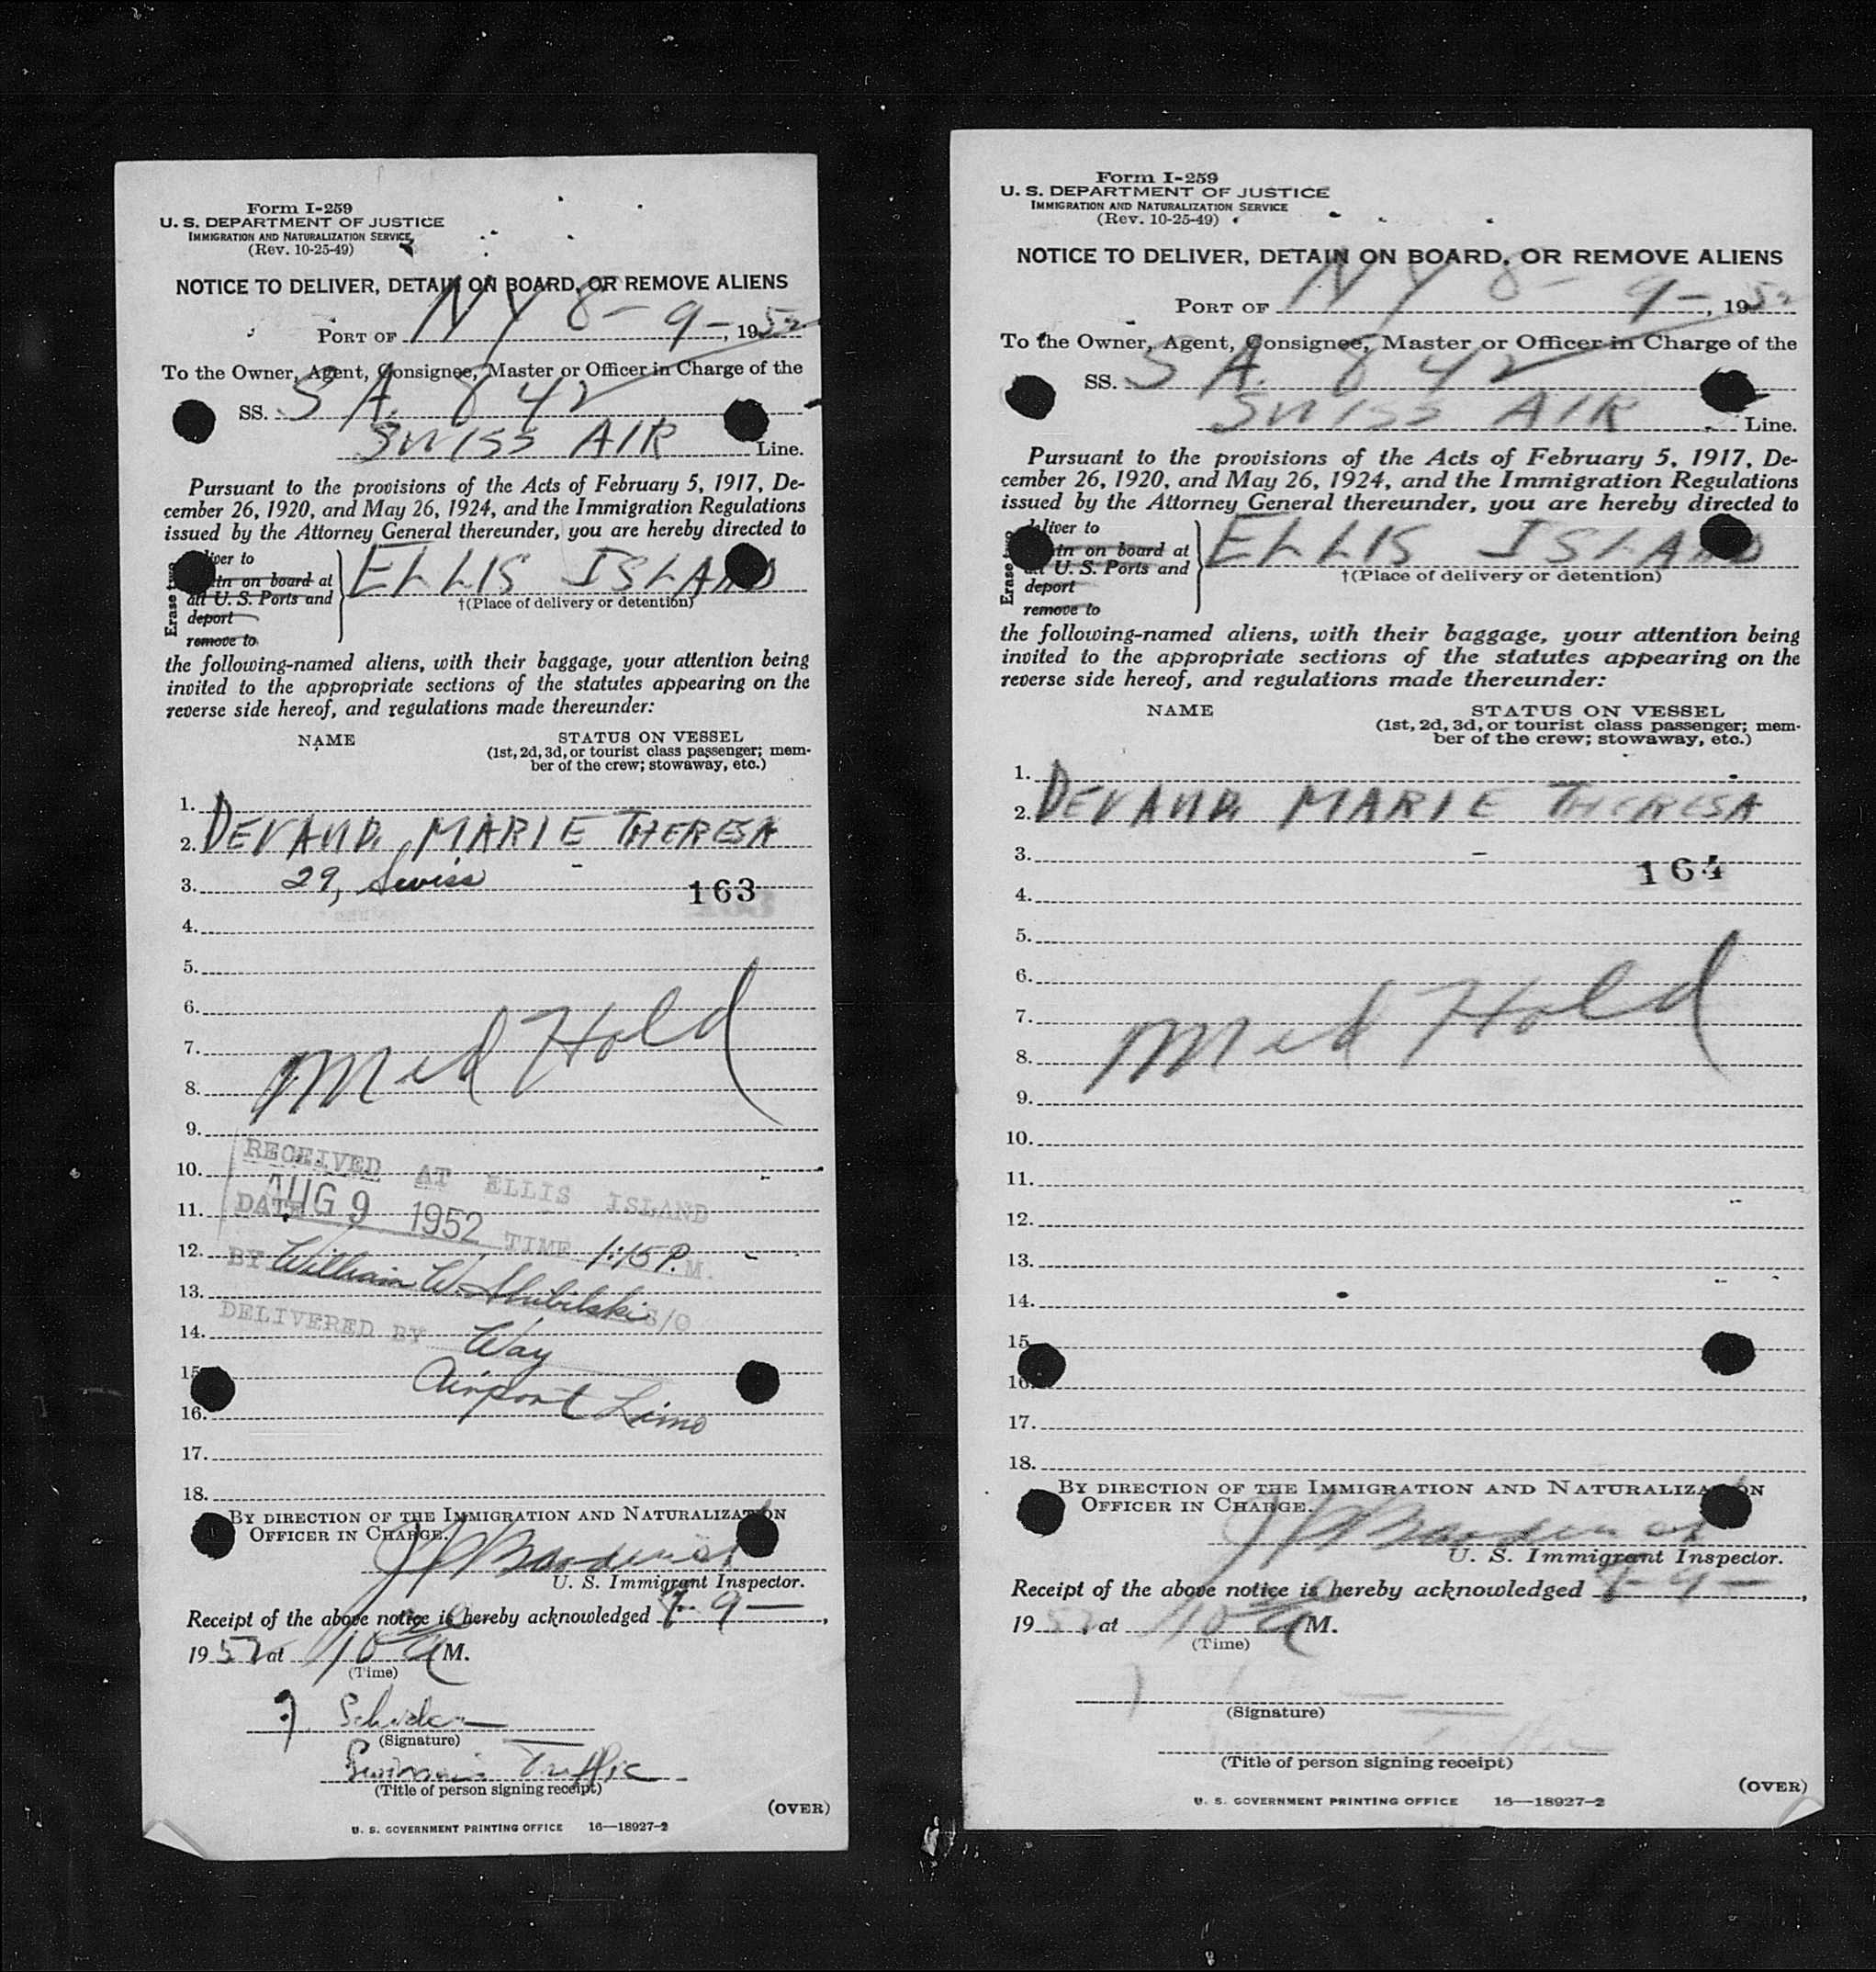 Form I-259
U. S. DEPARTMENT OF JUSTICE
IMMIGRATION AND NATURALIZATION SERVICE
(Rev. 10-25-49)
NOTICE TO DELIVER, DETAIN ON BOARD, OR REMOVE ALIENS
PORT OF NY 8-9-, 1952
To the Owner, Agent, Consignee, Master or Officer in Charge of the
SS. SA. 842
SWISS AIR Line.
Pursuant to the provisions of the Acts of February 5, 1917, De-
cember 26, 1920, and May 26, 1924, and the Immigration Regulations
issued by the Attorney General thereunder, you are hereby directed to
Erase two
liver to
in on board at
all U. S. Ports and
deport
remove to
ELLIS ISLAND
†(Place of delivery or detention)
the following-named aliens, with their baggage, your attention being
invited to the appropriate sections of the statutes appearing on the
reverse side hereof, and regulations made thereunder:
NAME STATUS ON VESSEL
(1st, 2d, 3d, or tourist class passenger; mem-
ber of the crew; stowaway, etc.)
1.
2. DEVAUD, MARIE THERESA
3. 29, Swiss 163
4.
5.
6.
7. Med Hold
8.
9.
10. RECEIVED AT ELLIS ISLAND
11. DATE AUG 9 1952 TIME 1:15 P.M.
12. BY William W. Shubilski S/O
13.
14. DELIVERED BY Way
15. Airport Limo
16.
17.
18.
BY DIRECTION OF THE IMMIGRATION AND NATURALIZATION
OFFICER IN CHARGE.
U. S. Immigrant Inspector.
Receipt of the above notice is hereby acknowledged 8-9-,
1952 at 10 AM.
(Time)
(Signature)
Traffic
(Title of person signing receipt)
(OVER)
U. S. GOVERNMENT PRINTING OFFICE 16—18927-2
Form I-259
U. S. DEPARTMENT OF JUSTICE
IMMIGRATION AND NATURALIZATION SERVICE
(Rev. 10-25-49)
NOTICE TO DELIVER, DETAIN ON BOARD, OR REMOVE ALIENS
PORT OF NY 8-9-, 1952
To the Owner, Agent, Consignee, Master or Officer in Charge of the
SS. SA. 842
SWISS AIR Line.
Pursuant to the provisions of the Acts of February 5, 1917, De-
cember 26, 1920, and May 26, 1924, and the Immigration Regulations
issued by the Attorney General thereunder, you are hereby directed to
Erase two
liver to
in on board at
all U. S. Ports and
deport
remove to
ELLIS ISLAND
†(Place of delivery or detention)
the following-named aliens, with their baggage, your attention being
invited to the appropriate sections of the statutes appearing on the
reverse side hereof, and regulations made thereunder:
NAME STATUS ON VESSEL
(1st, 2d, 3d, or tourist class passenger; mem-
ber of the crew; stowaway, etc.)
1.
2. DEVAUD, MARIE THERESA
3. 164
4.
5.
6.
7. Med Hold
8.
9.
10.
11.
12.
13.
14.
15.
16.
17.
18.
BY DIRECTION OF THE IMMIGRATION AND NATURALIZATION
OFFICER IN CHARGE.
U. S. Immigrant Inspector.
Receipt of the above notice is hereby acknowledged 8-9-,
1952, at 10 AM.
(Time)
(Signature)
(Title of person signing receipt)
(OVER)
U. S. GOVERNMENT PRINTING OFFICE 16—18927-2